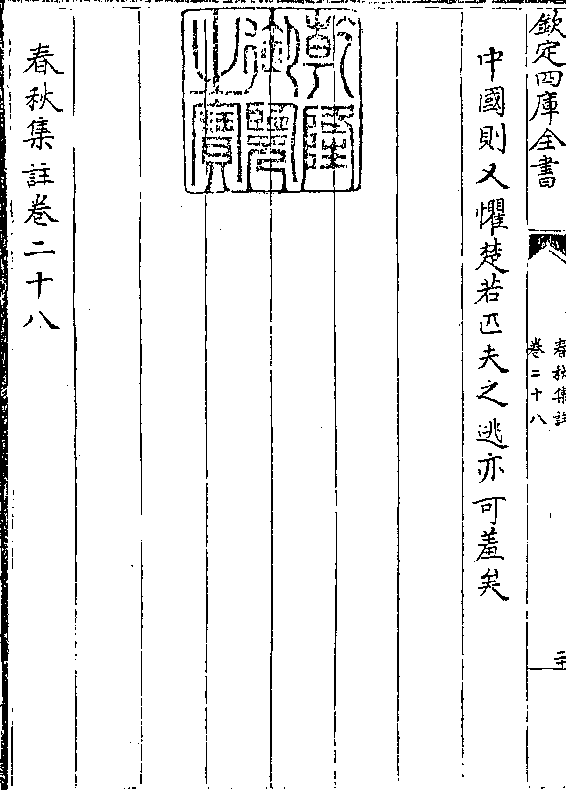 欽定四庫全書
春秋集註
卷二十八
中國則又懼楚若匹夫之逃亦可羞矣
乾隆
御覽
之寶
春秋集註卷二十八